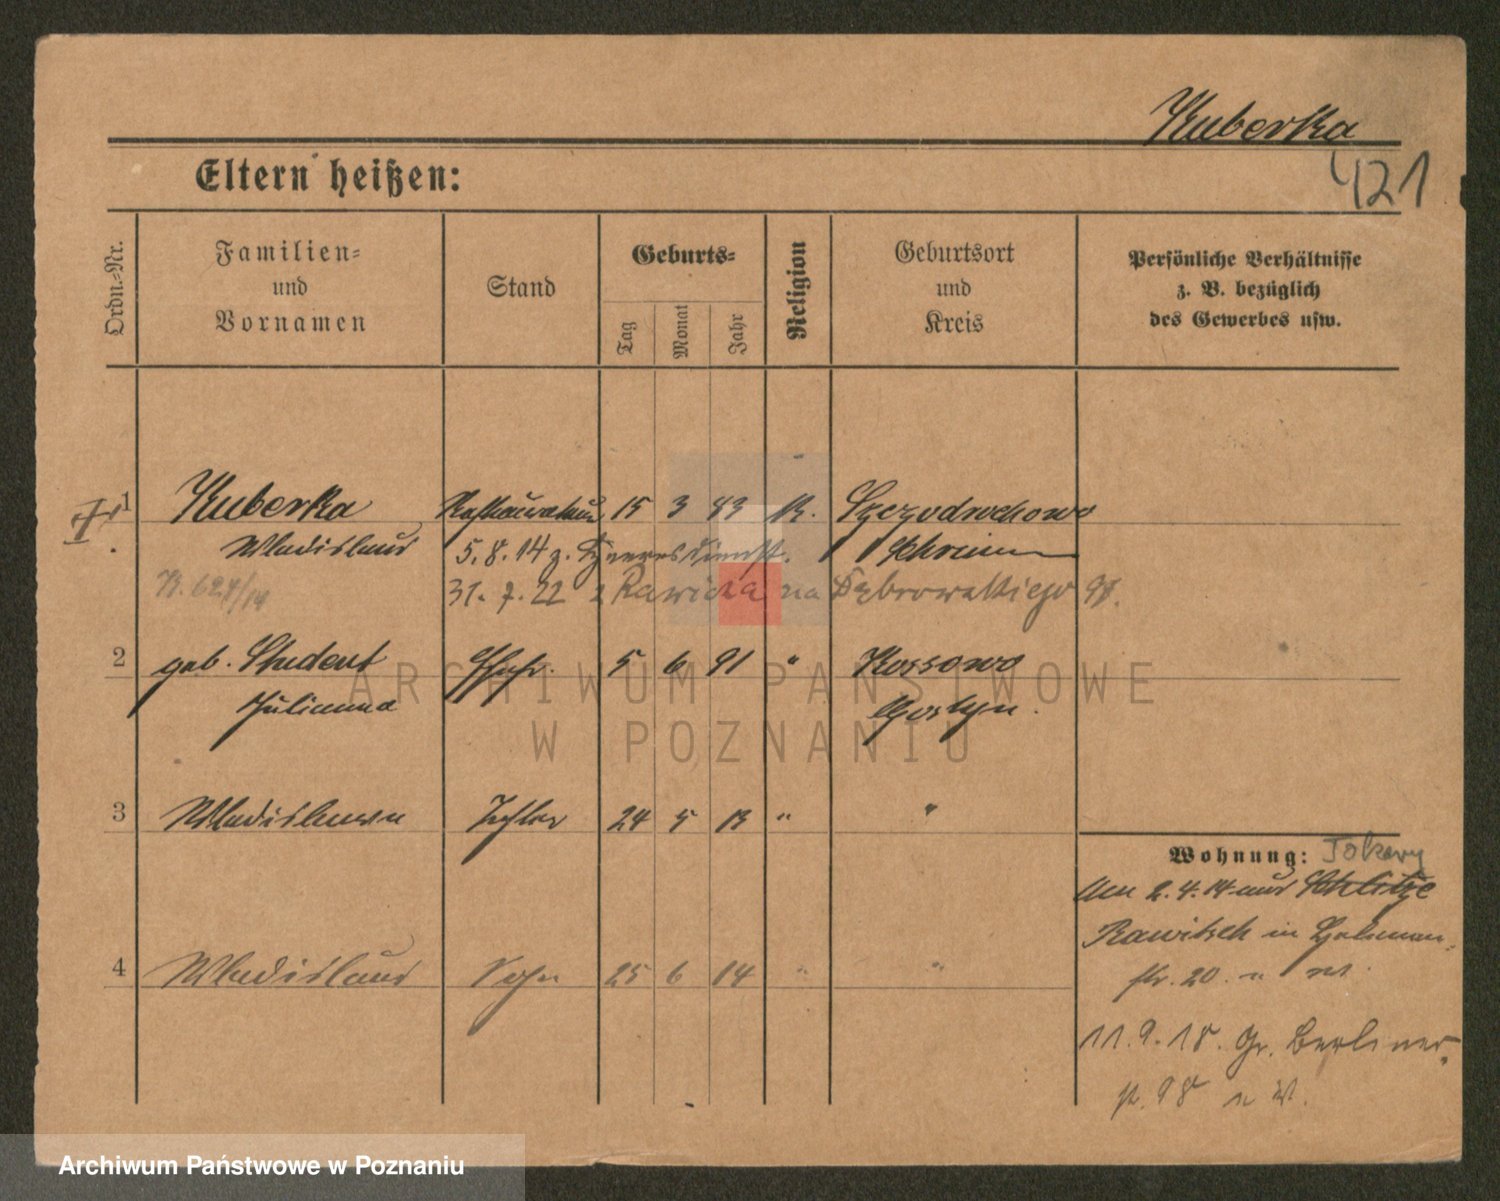 Kuberka
421
Eltern heißen:
Ordn.-Nr.
Familien-
und
Vornamen
Stand
Geburts-
Tag
Monat
Jahr
Religion
Geburtsort
und
Kreis
Persönliche Verhältnisse
z. B. bezüglich
des Gewerbes usw.
1 Kuberka 15 3 83 K.
Wladislaus 5.8.14 z. Heeresdienst. Schrimm
K. 627/14 31. 7. 22 z Rawicza na Dąbrowskiego 98.
2 geb. Student Ehefr. 5 6 91 " Kossowo
Julianna Gostyn.
3 Wladislawa Tochter 24 5 13 " "
Wohnung:
Am 2.4.14 aus Schlitze
Rawitsch in
str. 20.
4 Wladislaus Sohn 25 6 14 " "
11.9.18. Gr. Berliner-
st. 98
ARCHIWUM PAŃSTWOWE
W POZNANIU
Archiwum Państwowe w Poznaniu